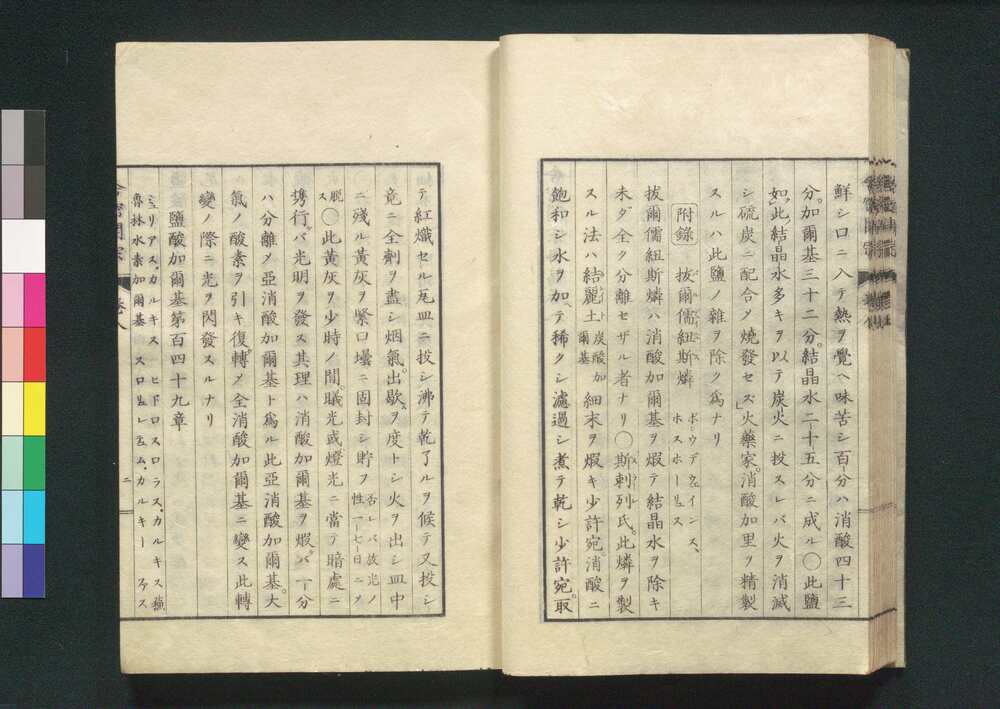 鮮シロニ入テ熱ヲ覺ヘ味苦シ百分ハ消酸四十三
分。加爾基三十二分。結晶水二十五分ニ成ル〇此鹽
如此、結晶水多キヲ以テ炭火ニ投スレバ火ヲ消滅
シ硫炭ニ配合メ燒發セズ」火藥家。消酸加里ヲ精製
スルハ此鹽ノ雜ヲ除ク爲ナリ
附錄 拔爾儒紐斯燐 ボウデウェインス、ホスホーリュス
拔爾儒紐斯燐ハ消酸加爾基ヲ煆テ結晶水ヲ除キ
未ダ全ク分離セザル者ナリ〇斯刺列氏。此燐ヲ製
スル法ハ結麗土炭酸加爾基細末ヲ煆キ少許宛。消酸ニ
飽和シ水ヲ加ヘテ稀クシ濾過シ煮テ乾シ少許宛。取
テ紅熾セル瓦皿ニ投シ沸テ乾了ルヲ候テ又投シ
竟ニ全劑ヲ盡シ烟氣。出歇ヲ度トシ火ヲ出シ皿中
ニ殘ル黃灰ヲ緊口壜ニ固封シ貯フ否レバ放光ノ性一七日ニヲ
脱ス〇此黃灰ヲ少時ノ間。曦光或燈光ニ當テ暗處ニ
携行バ光明ヲ發ス其理ハ消酸加爾基ヲ煆バ一分
ハ分離メ亞消酸加爾基ト爲ル此亞消酸加爾基。大
氣ノ酸素ヲ引キ復轉メ全消酸加爾基ニ變ス此轉
變ノ際ニ光ヲ閃發スルナリ
鹽酸加爾基第百四十九章
ミュリアス、カルキス ヒドロスロラス、カルキス
魯林水素加爾基 スロリュレュム、カルキー
卷八
二